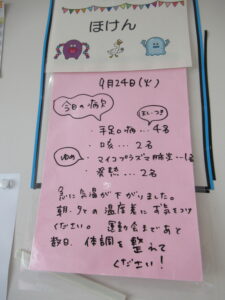 ほけん
9月24日(火)
今日の病欠
・手足口病…4名
・口炎…2名
・マイコプラズマ肺炎…1名
・発熱…2名
急に気温が下がりました。
朝・夕での温度差にお気をつけ
ください。 運動会まであと
数日、体調を整えて
ください!